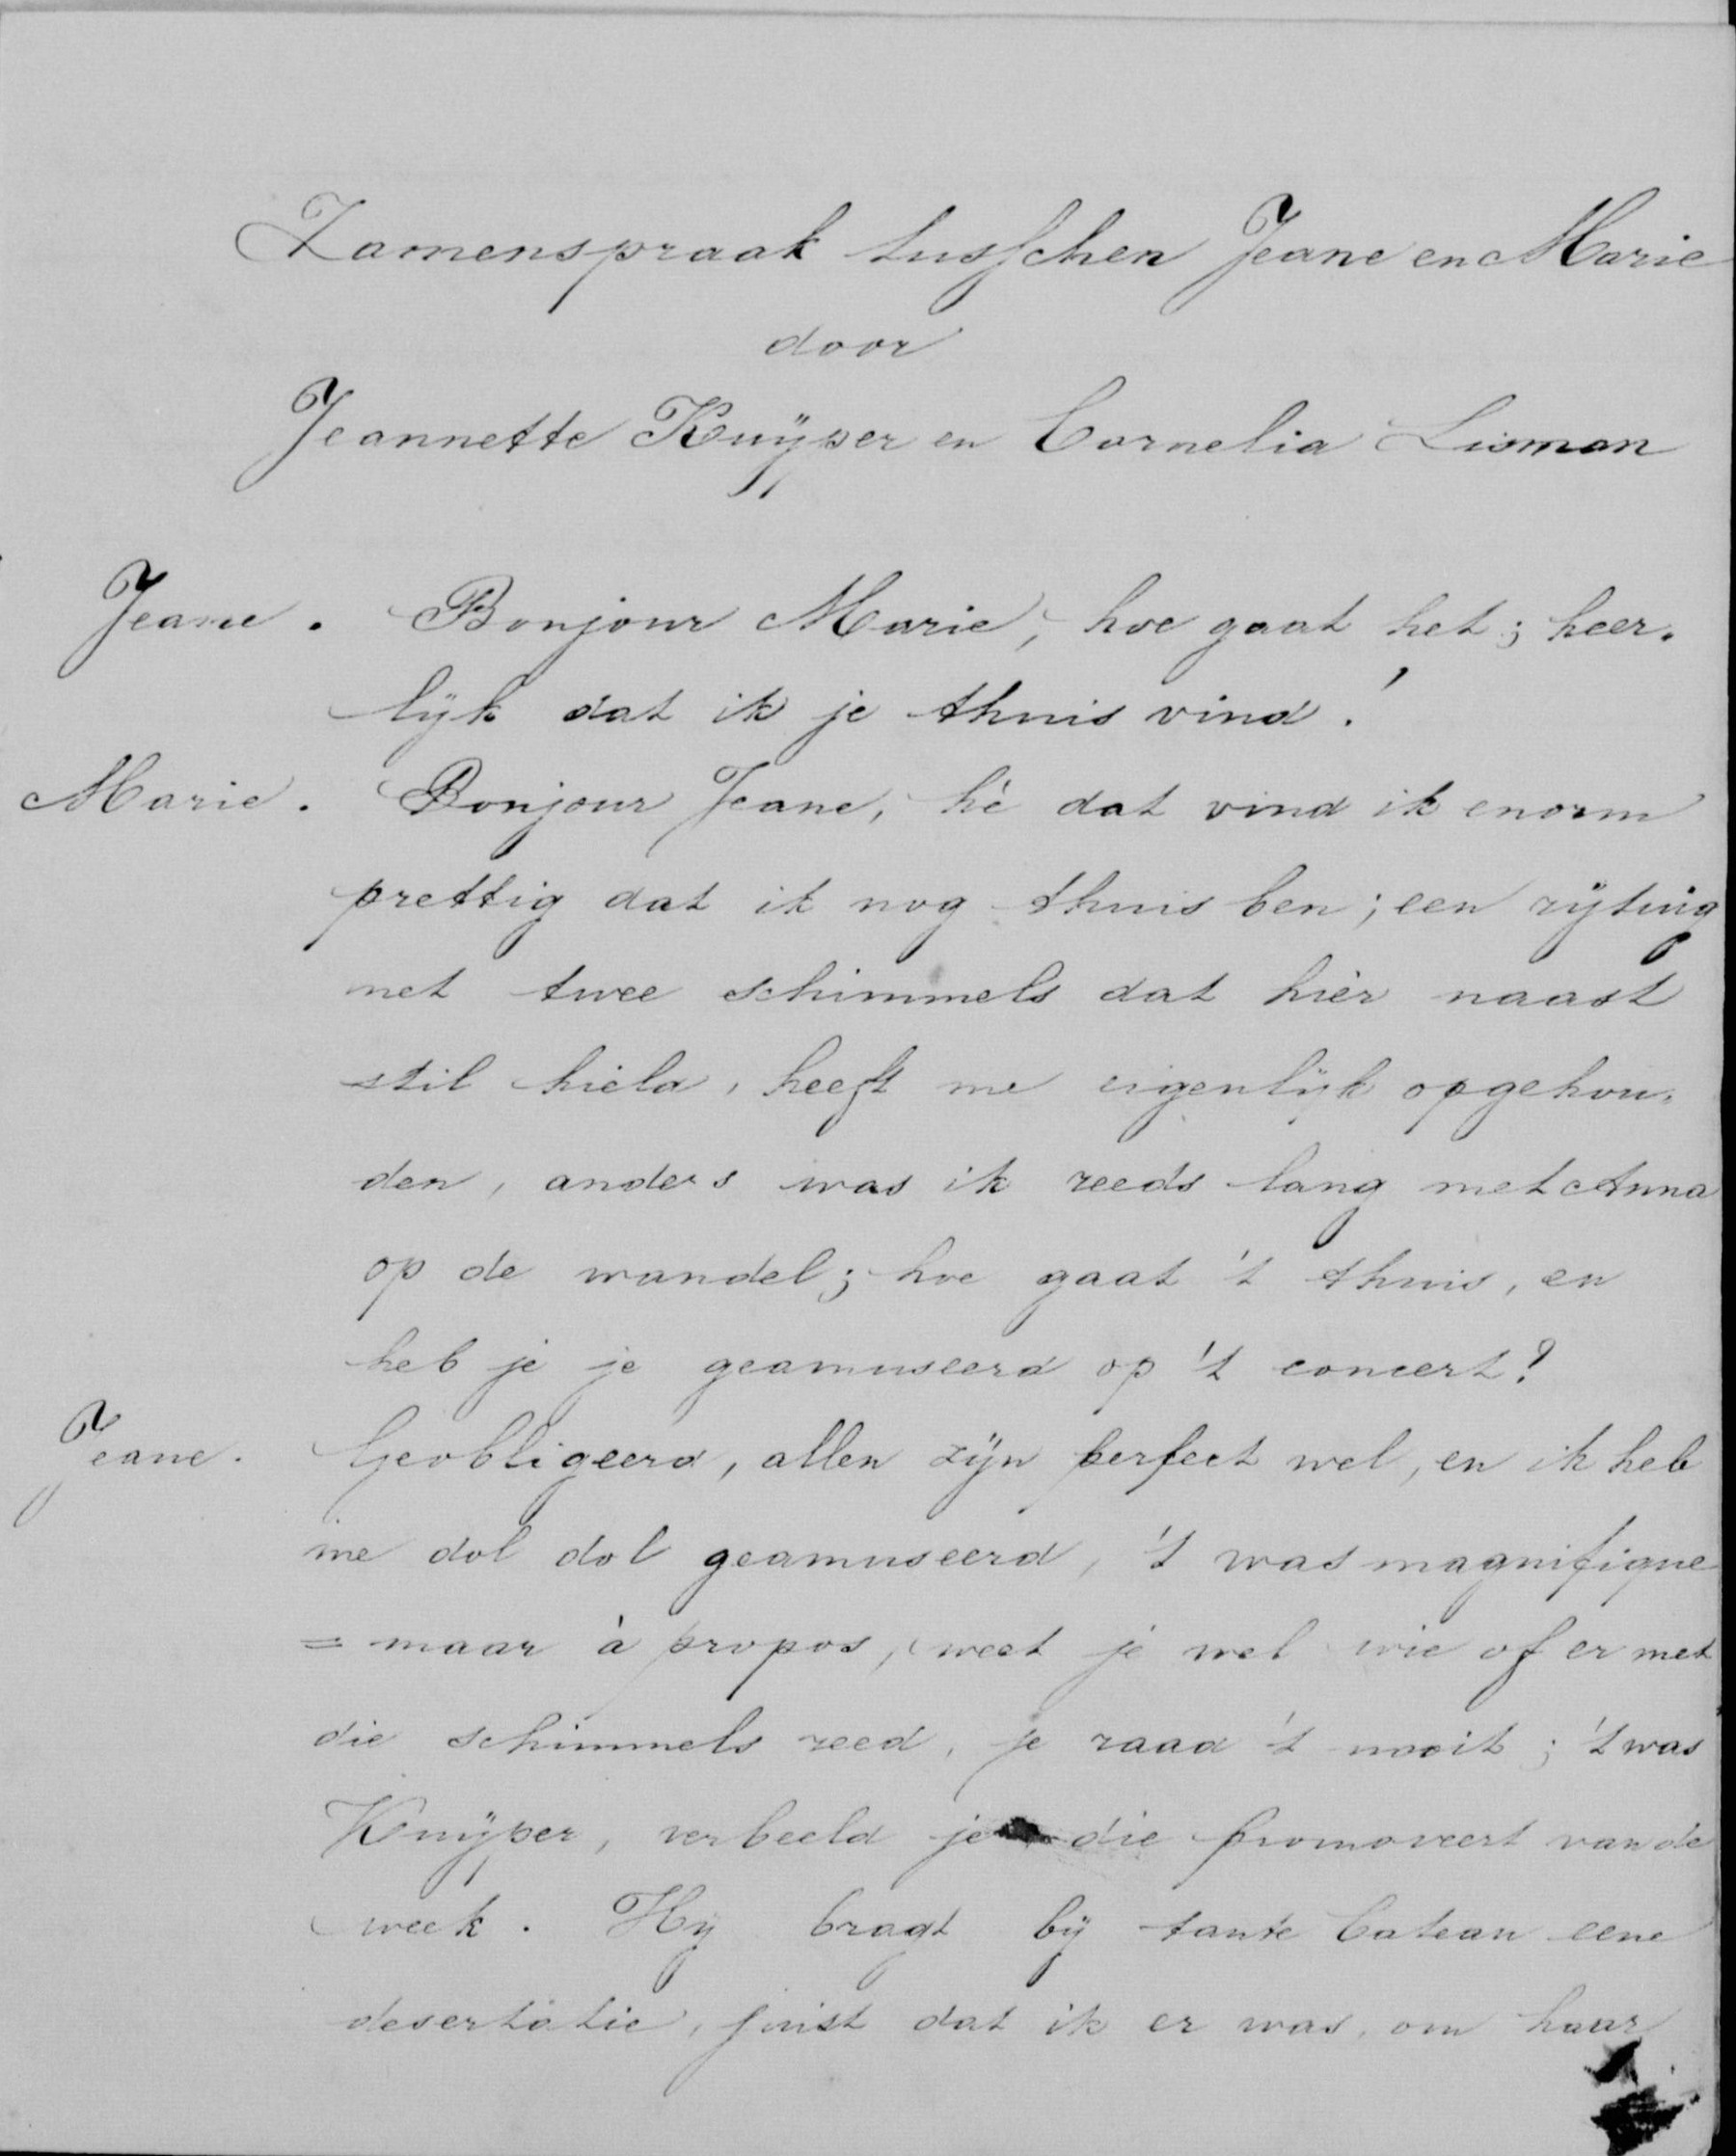 Zamenspraak tusschen Jeane en Marie
door
Jeannette Kuÿper en Cornelia Lisman
Jeane. Bonjour Marie, hoe gaat het; heer-
lÿk dat ik je thuis vind!
Marie. Bonjour Jeane, hè dat vind ik enorm
prettig dat ik nog thuis ben; een rÿtuig
met twee schimmels dat hier naast
stil hield, heeft me eigenlÿk opgehou-
den, anders was ik reeds lang met Anna
op de wandel; hoe gaat 't thuis, en
heb je je geamuseerd op 't concert?
Jeane. Geobligeerd, allen zÿn perfect wel, en ik heb
me dol dol geamuseerd, 't was magnifique
= maar à propos, weet je wel wie of er met
die schimmels reed, je raad 't nooit; 't was
Kuÿper, verbeeld je die promoveert van de
week. Hÿ bragt bÿ tante Cateau eene
desertatie, juist dat ik er was, om haar